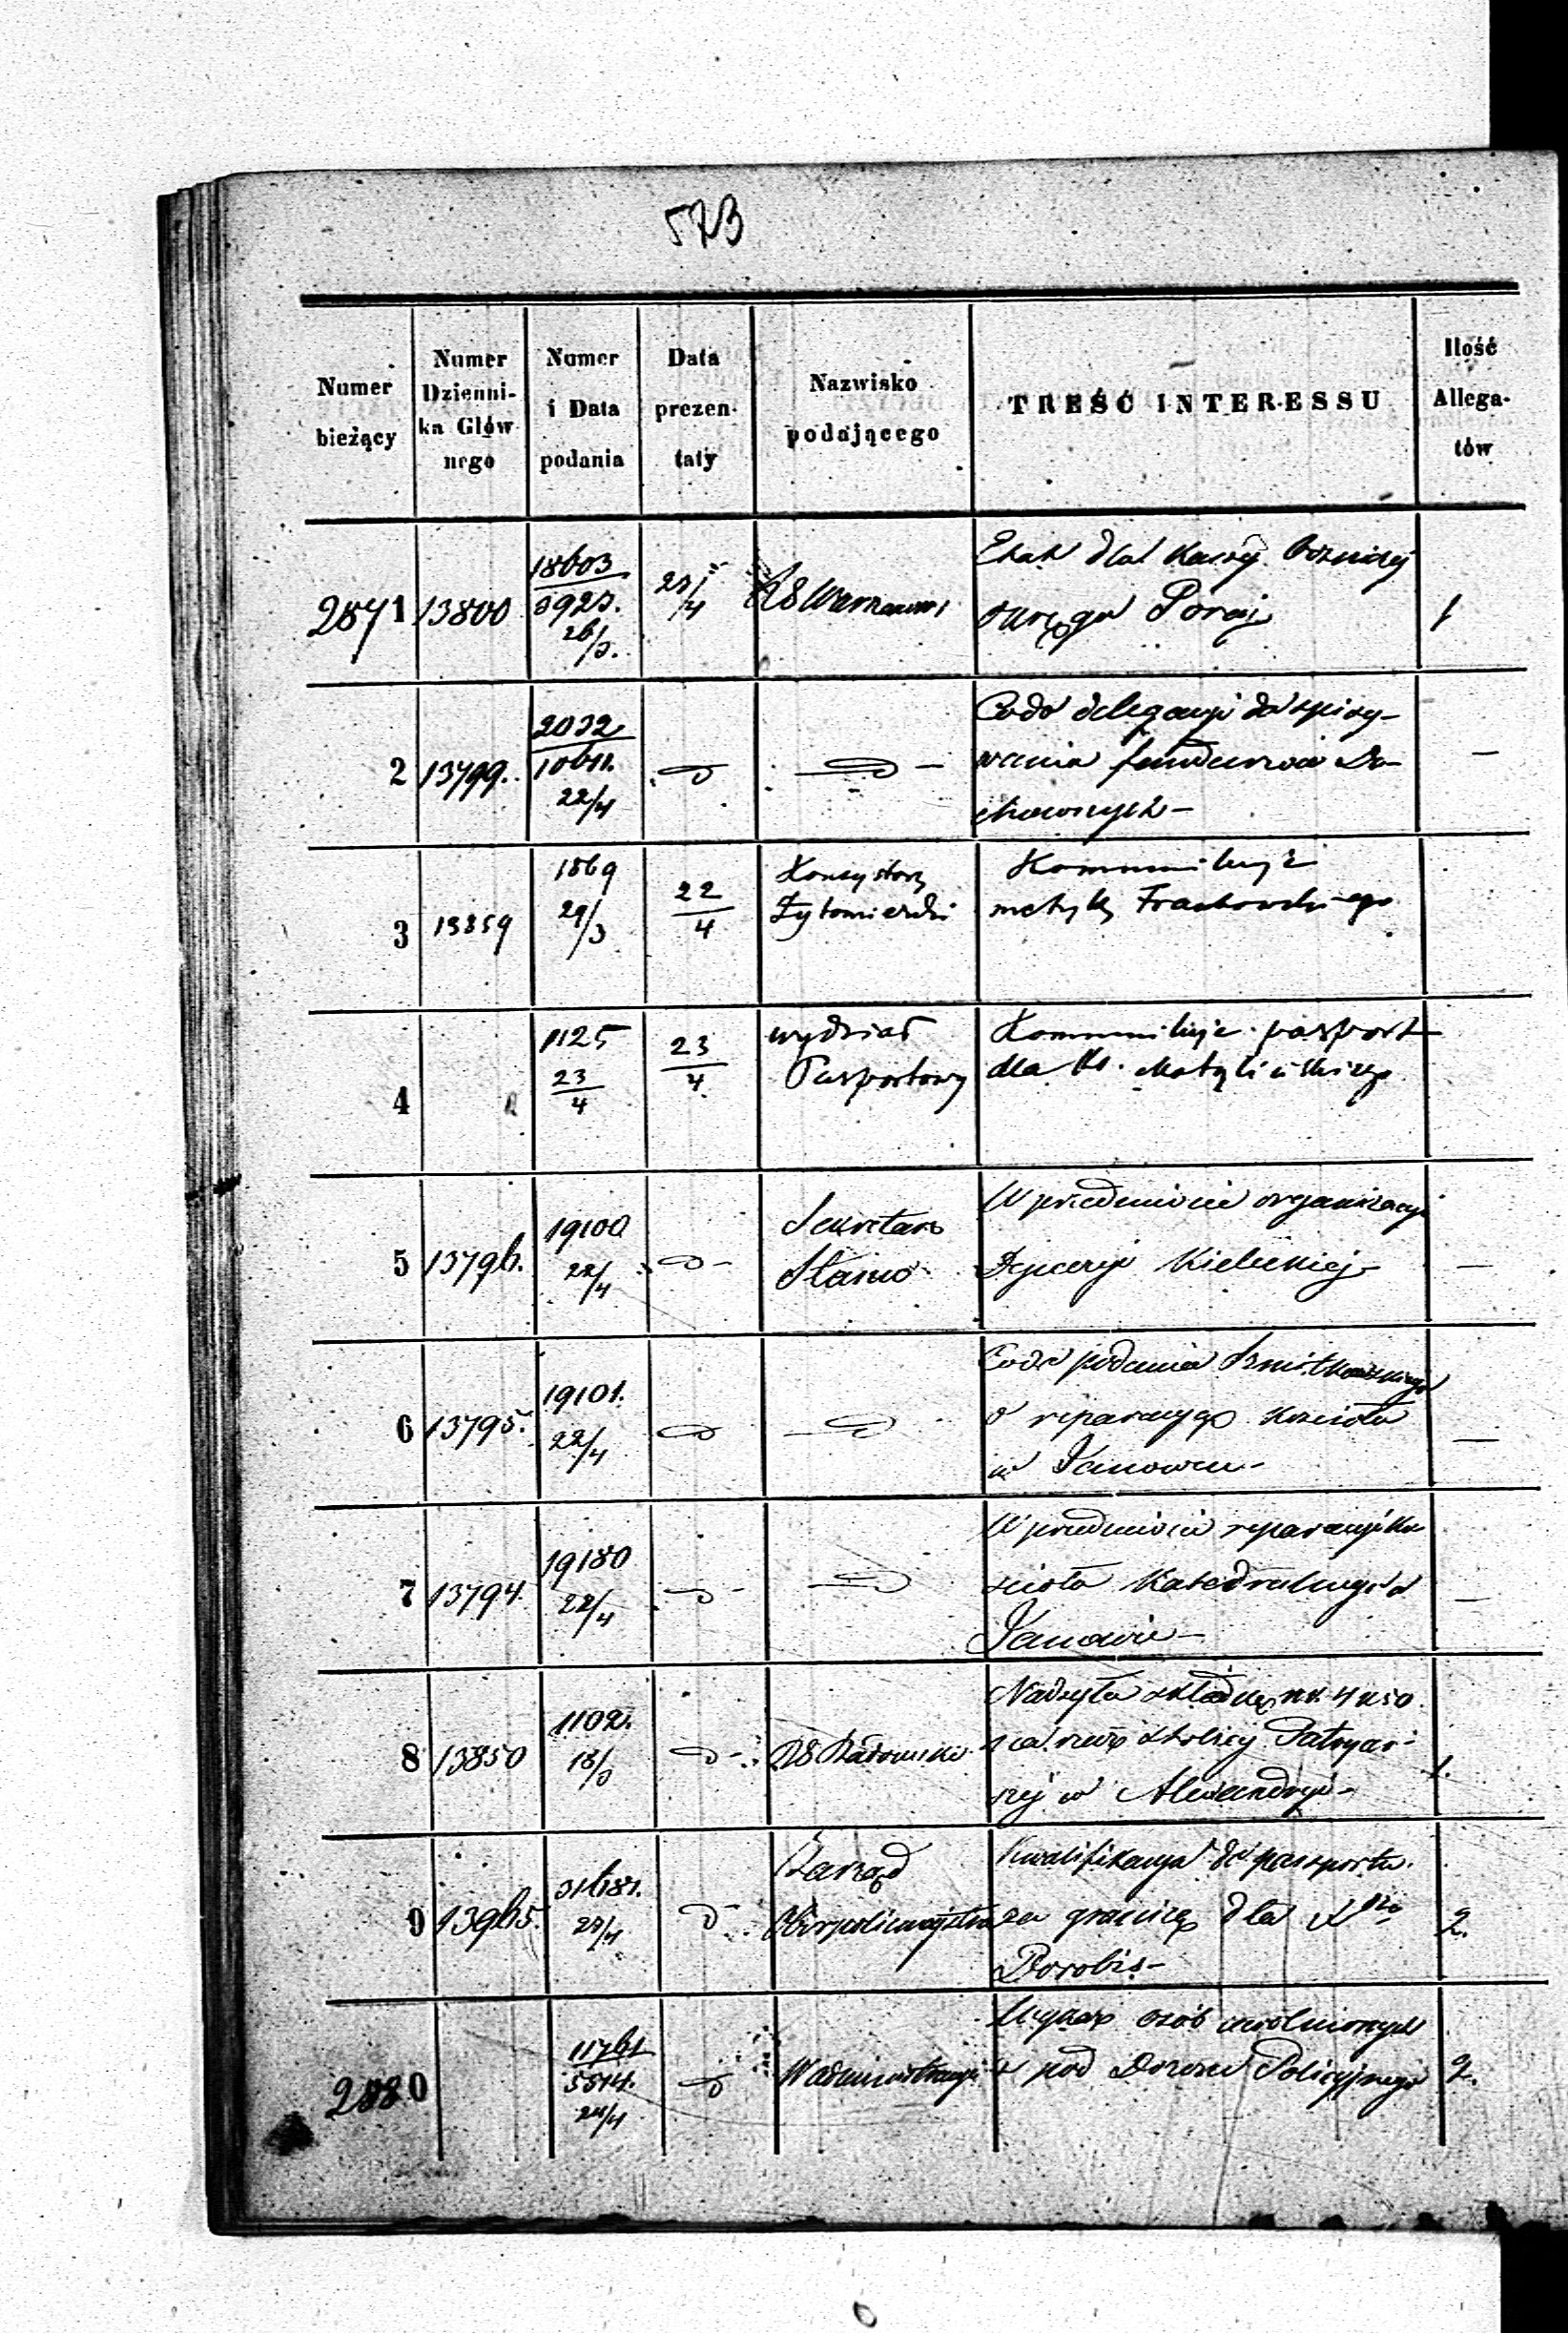 573
Numer bieżący
Numer Dzienni-ka Głów nego
Numer i Data podania
Data prezen-taty
Nazwisko podającego
TREŚĆ INTERESSU
Ilość Allega-tów
2871 13800 18603 3923. 26/3. 23/4 Etat dla kassy
okręgu Poraj 1
2 13799. 2032 22/4 Co do delegacyi do spisy-
wania funduszów Du-
chownych - —
3 13859 1869 29/3 22/4 Konsystorz Żytomierski Kommunikuje
metrykę
4 1125 23/4 23/4 wydział Pasportowy Kommunikuje pasport
dla
5 13796. 19100 22/4 Sekretarz Stanu W przedmiocie organizacyi
Dyecezyi Kieleckiej - —
6 13795. 19101. 22/4 Co do podania
o reparacyę kościoła
w Janowcu - —
7 13794. 19180 22/4 W przedmiocie reparacyi ko
ścioła Katedralnego w
Janowie - —
8 13850 1102. 18/3 RG Radomski Nadsyła składkę
na rzecz stolicy Patryar-
szej w Alexandryi - 1.
9 13965. 23/4 Zarząd Oberpolicmajstra Kwalifikacya do paszportu
za granicę dla Xdza
2.
2880 11761 24/4 osób uwolnionych
z pod Dozoru Policyjnego 2.